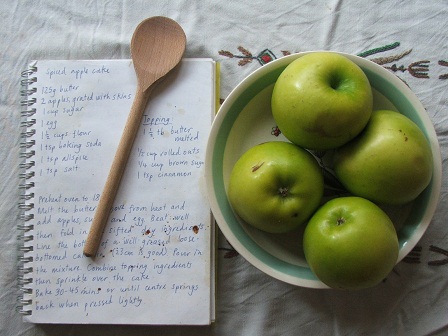 Spiced apple cake
125g butter
2 apples, grated with skins
1 cup sugar
1 egg
1½ cups flour
1 tsp baking soda
1 tsp allspice
1 tsp salt
Topping
butter
melted
½ cup rolled oats
¼ cup brown sugar
1 tsp cinnamon
Preheat oven to 18
Melt the butter, remove from heat and
add apples, sugar and egg. Beat well
then fold in sifted dry ingredients.
Line the bottom of a well greased loose
bottomed cake (23cm is good). Pour in
the mixture. Combine topping ingredients
then sprinkle over the cake.
Bake 30-45 mins or until centre springs
back when pressed lightly